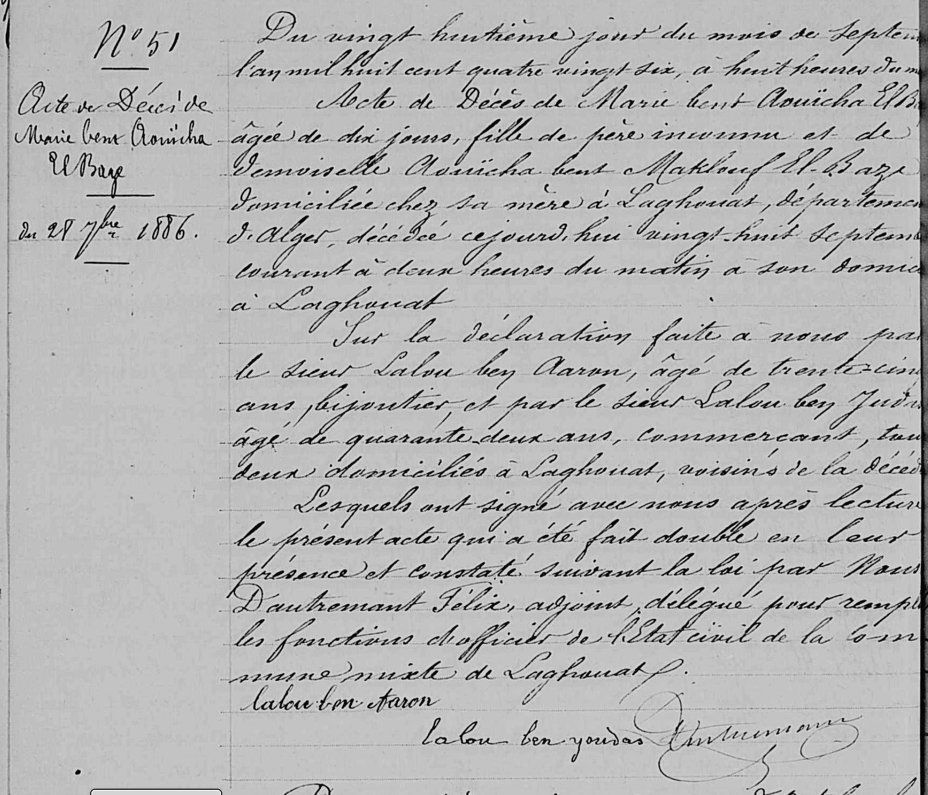 N° 51
Acte de Décès de
Marie bent Aouïcha
El Baze
du 28 7bre 1886.
Du vingt huitième jour du mois de Septem
l'an mil huit cent quatre vingt six, à huit heures du m
Acte de Décès de Marie bent Aouïcha El B
âgée de dix jours, fille de père inconnu et de
Demoiselle Aouïcha bent Maklouf El-Baze
domiciliée chez sa mère à Laghouat, départemen
d'Alger, décédée cejourd'hui vingt-huit Septem
courant à deux heures du matin à son domic
à Laghouat
Sur la déclaration faite à nous pa
le sieur Lalou ben Aaron, âgé de trente-cin
ans, bijoutier, et par le sieur Lalou ben Juda
âgé de quarante deux ans, commerçant, tou
deux domiciliés à Laghouat, voisins de la décéd
Lesquels ont signé avec nous après lectur
le présent acte qui a été fait double en leur
présence et constaté suivant la loi par Nous
Dautremant Félix, adjoint, délégué pour rempl
les fonctions d'officier de l'Etat civil de la Com
mune mixte de Laghouat.
lalou ben Aaron
lalou ben youdas